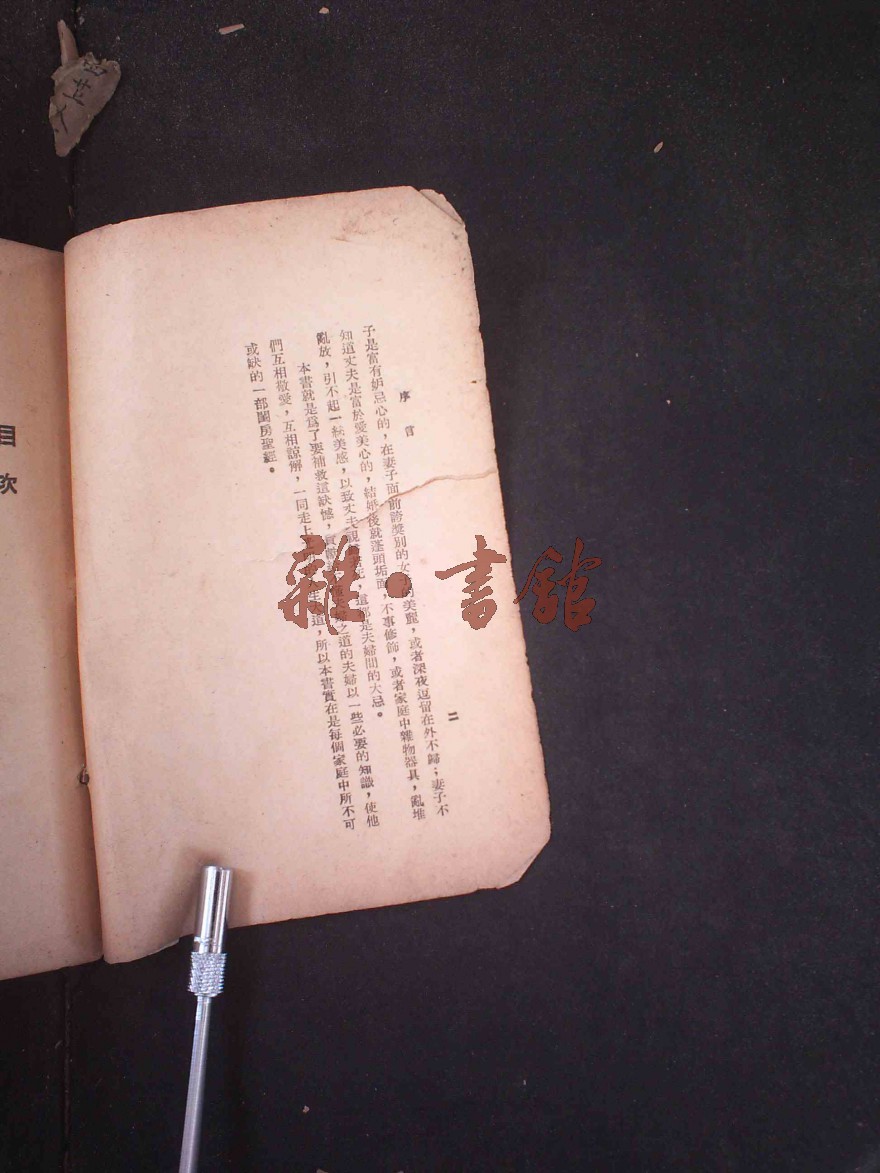 序言
二
子是富有妒忌心的，在妻子面前誇獎別的女的美麗，或者深夜逗留在外不歸；妻子不
知道丈夫是富於愛美心的，結婚後就蓬頭垢面，不事修飾，或者家庭中雜物器具，亂堆
亂放，引不起一絲美感，以致丈夫，這都是夫婦間的大忌。
本書就是為了要補救這缺憾，之道的夫婦以一些必要的知識，使他
們互相敬愛，互相諒解，一同走上道，所以本書實在是每個家庭中所不可
或缺的一部閨房聖經。
目次
雜·書館